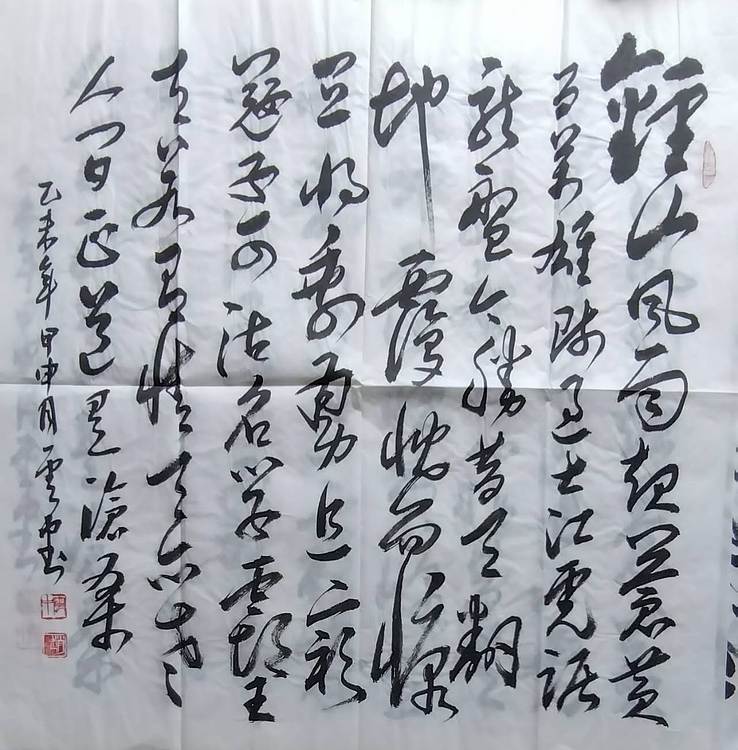 鍾山風雨起蒼黄
百萬雄師過大江虎踞
龍盤今勝昔天翻
地覆慨而慷
宜將剩勇追窮
寇不可沽名學霸王
天若有情天亦老
人間正道是滄桑
乙未年甲申月雲書